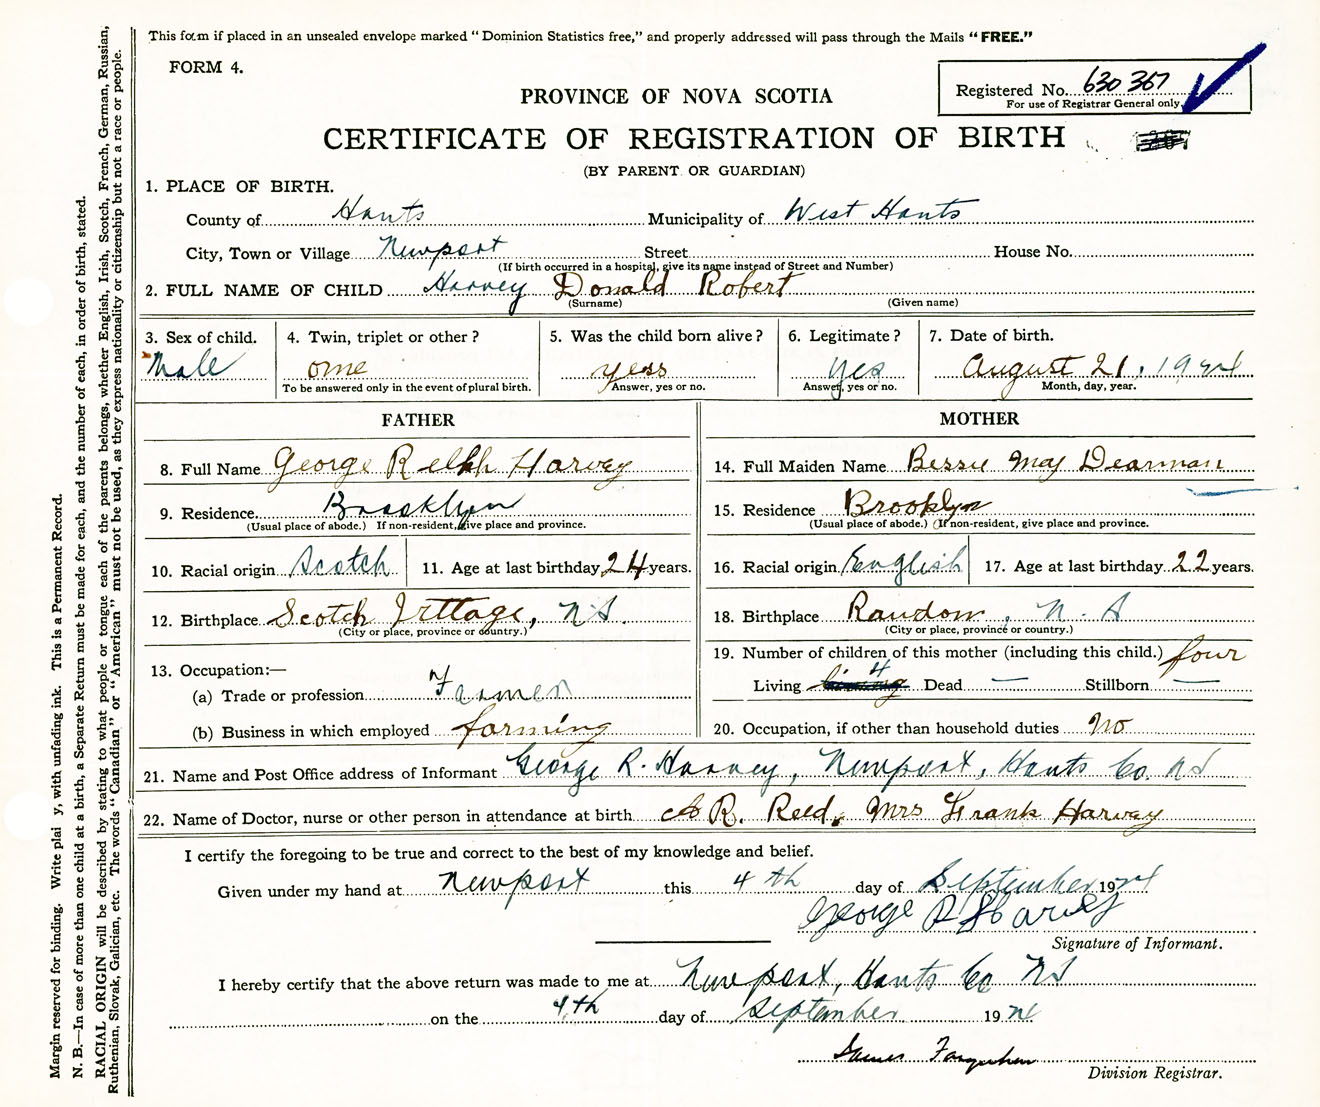 This form if placed in an unsealed envelope marked "Dominion Statistics free," and properly addressed will pass through the Mails "FREE."
FORM 4.
Registered No. 630 367
For use of Registrar General only
PROVINCE OF NOVA SCOTIA
CERTIFICATE OF REGISTRATION OF BIRTH
(BY PARENT OR GUARDIAN)
1. PLACE OF BIRTH.
County of Hants Municipality of West Hants
City, Town or Village Newport Street House No.
(If birth occurred in a hospital, give its name instead of Street and Number)
2. FULL NAME OF CHILD Harvey Donald Robert
(Surname) (Given name)
3. Sex of child. 4. Twin, triplet or other? 5. Was the child born alive? 6. Legitimate? 7. Date of birth.
Male one yess yes August 21, 1924
To be answered only in the event of plural birth. Answer, yes or no. Answer, yes or no. Month, day, year.
FATHER MOTHER
8. Full Name George Harvey 14. Full Maiden Name Bessie May Dearman
9. Residence Brooklyn 15. Residence Brooklyn
(Usual place of abode.) If non-resident, give place and province. (Usual place of abode.) (If non-resident, give place and province.
10. Racial origin Scotch 11. Age at last birthday 24 years. 16. Racial origin English 17. Age at last birthday 22 years.
12. Birthplace Scotch , NS. 18. Birthplace Raudon, N. S
(City or place, province or country.) (City or place, province or country.)
13. Occupation:— 19. Number of children of this mother (including this child.) four
(a) Trade or profession Farmer Living 4 Dead — Stillborn —
(b) Business in which employed farming 20. Occupation, if other than household duties no
21. Name and Post Office address of Informant George R. Harvey, Newport, Hants Co. NS
22. Name of Doctor, nurse or other person in attendance at birth R. Reed, Mrs Frank Harvey
I certify the foregoing to be true and correct to the best of my knowledge and belief.
Given under my hand at Newport this 4th day of September 1924
George R Harvey
Signature of Informant.
I hereby certify that the above return was made to me at Newport, Hants Co NS
on the 4th day of September 1924
James Farquhar
Division Registrar.
Margin reserved for binding. Write plai y, with unfading ink. This is a Permanent Record.
N. B.—In case of more than one child at a birth, a Separate Return must be made for each, and the number of each, in order of birth, stated.
RACIAL ORIGIN will be described by stating to what people or tongue each of the parents belongs, whether English, Irish, Scotch, French, German, Russian,
Ruthenian, Slovak, Galician, etc. The words "Canadian" or "American" must not be used, as they express nationality or citizenship but not a race or people.